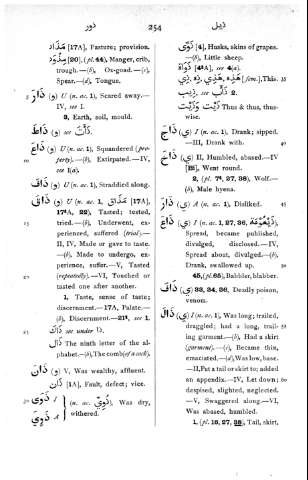 ذيل 254 ذور
[17A], Pasture; provision.
[20], (pl. 44), Manger, crib,
trough.—(b), Ox-goad.—(c),
Spear.—(d), Tongue.
U (n. ac. 1), Scared away.—
IV, see 1.
3, Earth, soil, mould.
ذاط (و) see
ذاع (و) U (n. ac. 1), Squandered (pro-
perty).—(b), Extirpated.—IV,
see 1(a).
ذاف (و) U (n. ac. 1), Straddled along.
ذاق (و) U (n. ac. 1, [17A],
17tA, 22), Tasted; tested,
tried.—(b), Underwent, ex-
perienced, suffered (trial).—
II, IV, Made or gave to taste.
—(b), Made to undergo, ex-
perience, suffer.—V, Tasted
(repeatedly).—VI, Touched or
tasted one after another.
1, Taste, sense of taste;
discernment.—17A, Palate.—
(b), Discernment.—21t, see 1.
ذاك see under ذا.
ذال The ninth letter of the al-
phabet.—(b), The comb (of a cock).
V, Was wealthy, affluent.
ذان [1A], Fault, defect; vice.
ذوى I (n. ac. ), Was dry,
ذوي A withered.
[4], Husks, skins of grapes.
—(b), Little sheep.
[4tA], see 4(a).
(fem.), This.
ذيب see ذئب 2.
ذيت وذيت Thus & thus, thus-
wise.
ذاج (ي) I (n. ac. 1), Drank; sipped.
—III, Drank with.
II, Humbled, abused.—IV
[25], Went round.
2, (pl. 7t, 27, 38), Wolf.—
(b), Male hyena.
A (n. ac. 1), Disliked.
ذاع (ي) I (n. ac. 1, 27, 36, ),
Spread, became published,
divulged, disclosed.—IV,
Spread about, divulged.—(b),
Drank, swallowed up.
45, (pl. 65), Babbler, blabber.
33, 34, 36, Deadly poison,
venom.
ذال (ي) I (n. ac. 1), Was long; trailed,
draggled; had a long, trail-
ing garment.—(b), Had a skirt
(garment).—(c), Became thin,
emaciated.—(d), Was low, base.
—II, Put a tail or skirt to; added
an appendix.—IV, Let down;
despised, slighted, neglected.
—V, Swaggered along.—VI,
Was abused, humbled.
1, (pl. 16, 27, 38), Tail, skirt,